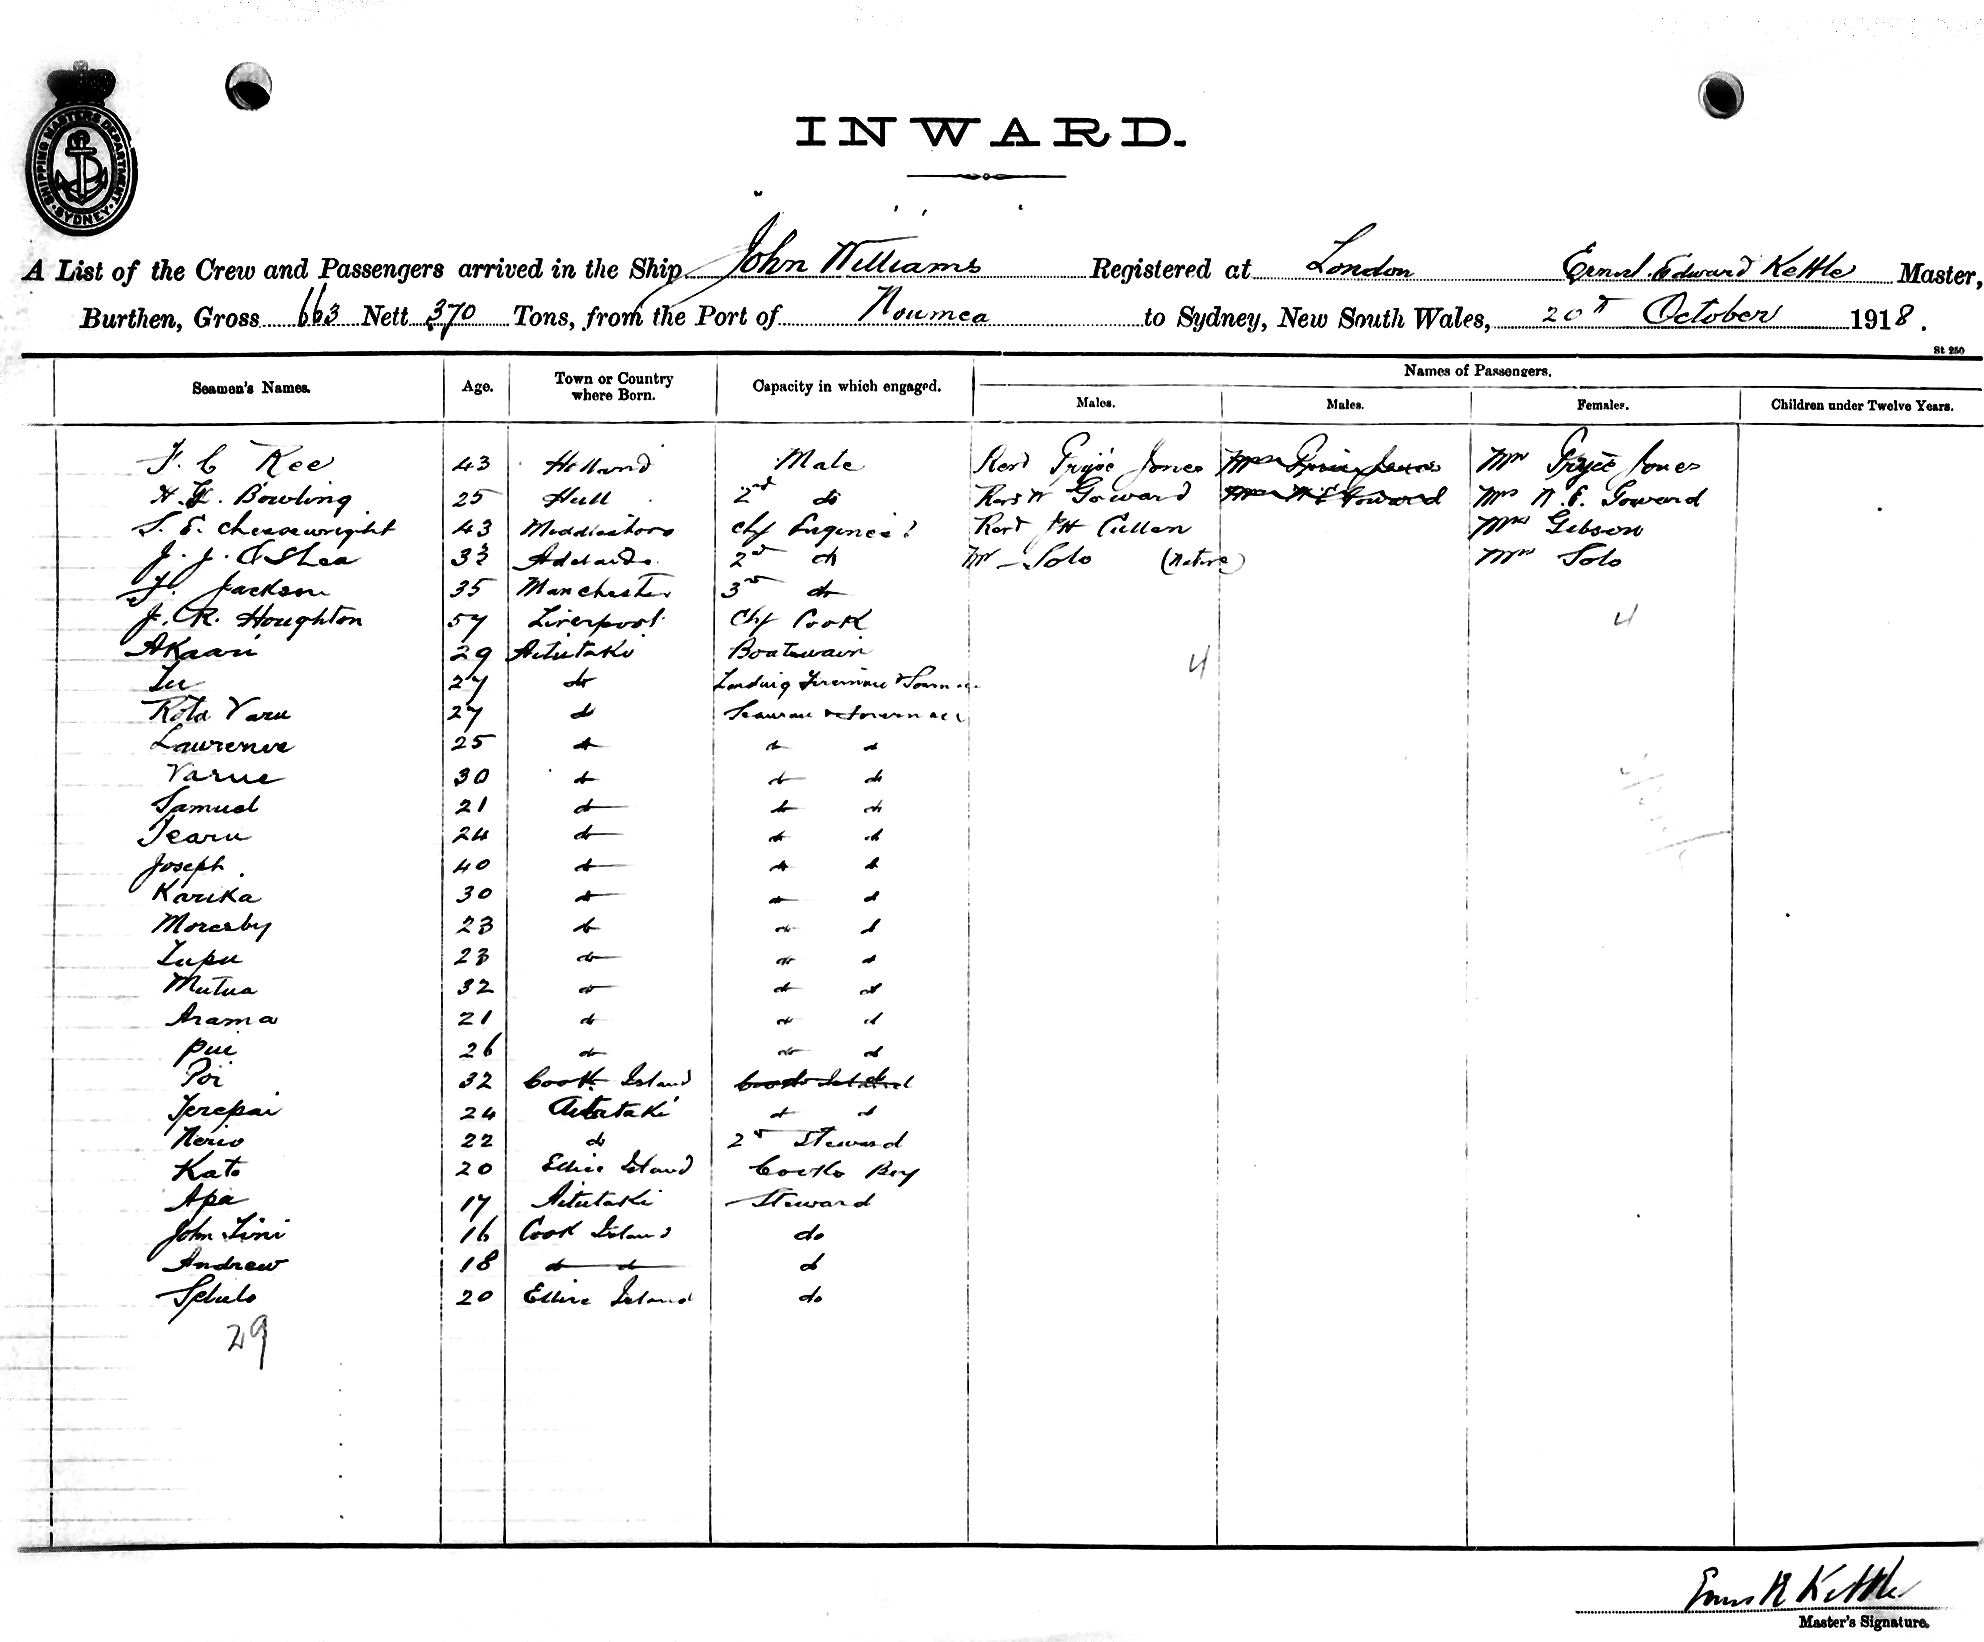 SHIPPING MASTERS DEPARTMENT · SYDNEY ·
INWARD.
A List of the Crew and Passengers arrived in the Ship John Williams Registered at London Ernest Edward Kettle Master,
Burthen, Gross 663 Nett 370 Tons, from the Port of Noumea to Sydney, New South Wales, 20th October 1918.
St 250
Seamen's Names. Age. Town or Country where Born. Capacity in which engaged. Names of Passengers.
Males. Males. Females. Children under Twelve Years.
F. C Kee 43 Holland Mate Revd Pryce Jones Mrs Pryce Jones
H. Bowling 25 Hull 2nd do Revd Goward Mrs W E Goward Mrs W. E. Goward
S. E. Cheesewright 43 Middlesboro Chf Engineer Revd JH Cullen Mrs Gibson
J. J. O'Shea 33 Adelaide 2nd do Mr Solo (Native) Mrs Solo
Jackson 35 Manchester 3rd do
J. R. Houghton 57 Liverpool Chf Cook 4
Akaari 29 Aitutaki Boatswain 4
Tu 27 do Leading Fireman &
Kota Varu 27 do Seaman &
Laurence 25 do do do
Varue 30 do do do
Samuel 21 do do do
Tearu 24 do do do
Joseph 40 do do do
Karika 30 do do do
Moresby 23 do do do
Tupu 23 do do do
Mutua 32 do do do
Arama 21 do do do
Pui 26 do do do
Poi 32 Cook Island
Terepai 24 Aitutaki do do
Nerio 22 do 2nd Steward
Kato 20 Ellice Island Cooks Boy
Apa 17 Aitutaki Steward
John Tini 16 Cook Island do
Andrew 18 do do do
20 Ellice Island do
29
Kettle
Master's Signature.